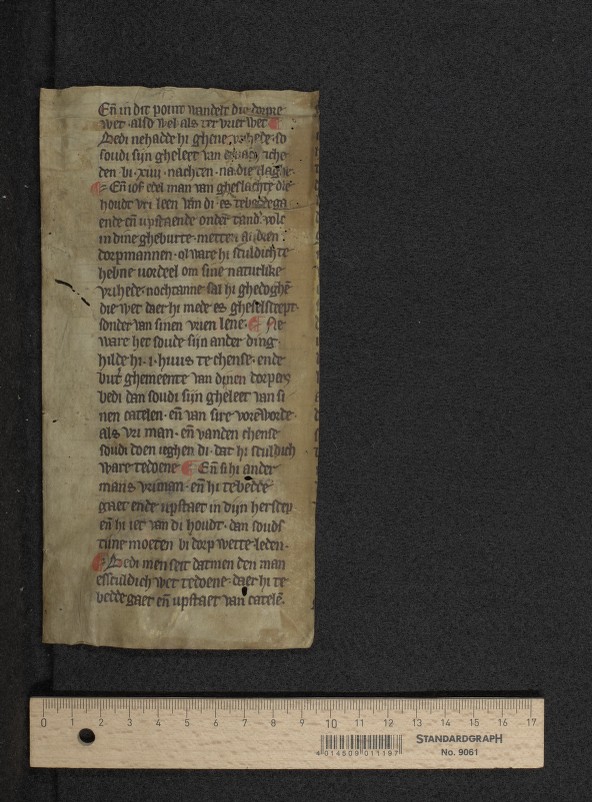 Eñ in dit point wandelt die dorpre
wet · also wel als ter vrier wet ¶
Bedi ne hadde hi ghene vrihede · so
soudi sijn gheleet van
den bi · xiiii · nachten · na die claghe ·
¶ Eñ iof edel man van gheslachte die
houdt vri leen van di es te bedde ga
ende eñ upstaende onder tand volc
in dine gheburte · metten andren
dorpmannen · ol ware hi sculdich te
hebne vordeel om sine naturlike
vrihede · nochtanne sal hi ghedoghē
die wet daer hi mede es
sonder van sinen vrien lene · ¶ Ne
ware het soude sijn ander ding ·
hilde hi · i · huus te chense · ende
buter ghemeente van dinen dorpers
bedi dan soudi sijn gheleet van si
nen catelen · eñ van sire voreworde ·
als vri man · eñ vanden chense
soudi doen ieghen di · dat hi sculdich
ware te doene ¶ Eñ si hi ander
mans vriman · eñ hi te bedde
gaet ende upstaet in dijn herscep
eñ hi iet van di houdt · dan souds
tune moeten bi dorp wette leden ·
¶ Bedi men seit datmen den man
es sculdich wet te doene · daer hi te
bedde gaet eñ upstaet van catelē ·
0 1 2 3 4 5 6 7 8 9 10 11 12 13 14 15 16 17
4 014509 011197
STANDARDGRAPH
No. 9061